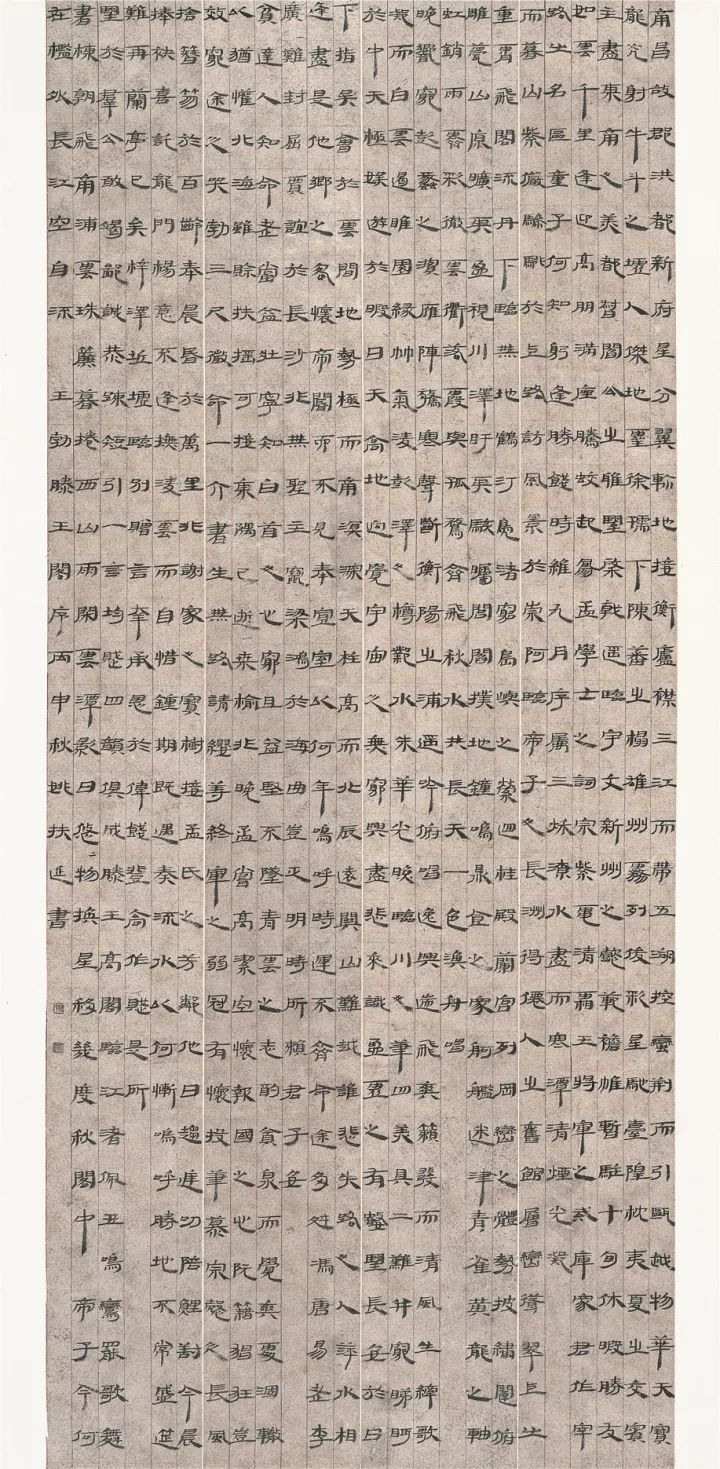 南昌故郡洪都新府星分翼軫地接衡廬襟三江而帶五湖控蠻荊而引甌越物華天寶
龍光射牛斗之墟人傑地靈徐孺下陳蕃之榻雄州霧列俊彩星馳臺隍枕夷夏之交賓
主盡東南之美都督閻公之雅望棨戟遙臨宇文新州之懿範襜帷暫駐十旬休暇勝友
如雲千里逢迎高朋滿座騰蛟起鳳孟學士之詞宗紫電清霜王將軍之武庫家君作宰
路出名區童子何知躬逢勝餞時維九月序屬三秋潦水盡而寒潭清煙光凝
而暮山紫儼驂騑於上路訪風景於崇阿臨帝子之長洲得僊人之舊館層巒聳翠上出
重霄飛閣流丹下臨無地鶴汀鳧渚窮島嶼之縈迴桂殿蘭宮列岡巒之體勢披繡闥俯
雕甍山原曠其盈視川澤盱其駭矚閭閻撲地鐘鳴鼎食之家舸艦迷津青雀黃龍之軸
虹銷雨霽彩徹雲衢落霞與孤鶩齊飛秋水共長天一色漁舟唱
晚響窮彭蠡之濱雁陣驚寒聲斷衡陽之浦遙吟俯唱逸興遄飛爽籟發而清風生纖歌
凝而白雲遏睢園綠竹氣凌彭澤之樽鄴水朱華光照臨川之筆四美具二難并窮睇眄
於中天極娛遊於暇日天高地迥覺宇宙之無窮興盡悲來識盈虛之有數望長安於日
下指吳會於雲間地勢極而南溟深天柱高而北辰遠關山難越誰悲失路之人萍水相
逢盡是他鄉之客懷帝閽而不見奉宣室以何年嗚呼時運不齊命途多舛馮唐易老李
廣難封屈賈誼於長沙非無聖主竄梁鴻於海曲豈乏明時所賴君子安
貧達人知命老當益壯寧知白首之心窮且益堅不墜青雲之志酌貪泉而覺爽處涸轍
以猶懽北海雖賒扶搖可接東隅已逝桑榆非晚孟嘗高潔空懷報國之心阮籍猖狂豈
效窮途之哭勃三尺微命一介書生無路請纓等終軍之弱冠有懷投筆慕宗愨之長風
捨簪笏於百齡奉晨昏於萬里非謝家之寶樹接孟氏之芳鄰他日趨庭叨陪鯉對今晨
捧袂喜託龍門楊意不逢撫凌雲而自惜鍾期既遇奏流水以何慚嗚呼勝地不常盛筵
難再蘭亭已矣梓澤丘墟臨別贈言幸承恩於偉餞登高作賦是所
望於群公敢竭鄙誠恭疏短引一言均賦四韻俱成滕王高閣臨江渚佩玉鳴鸞罷歌舞
畫棟朝飛南浦雲珠簾暮捲西山雨閑雲潭影日悠悠物換星移幾度秋閣中帝子今何
在檻外長江空自流 王勃滕王閣序丙申秋姚扶延書